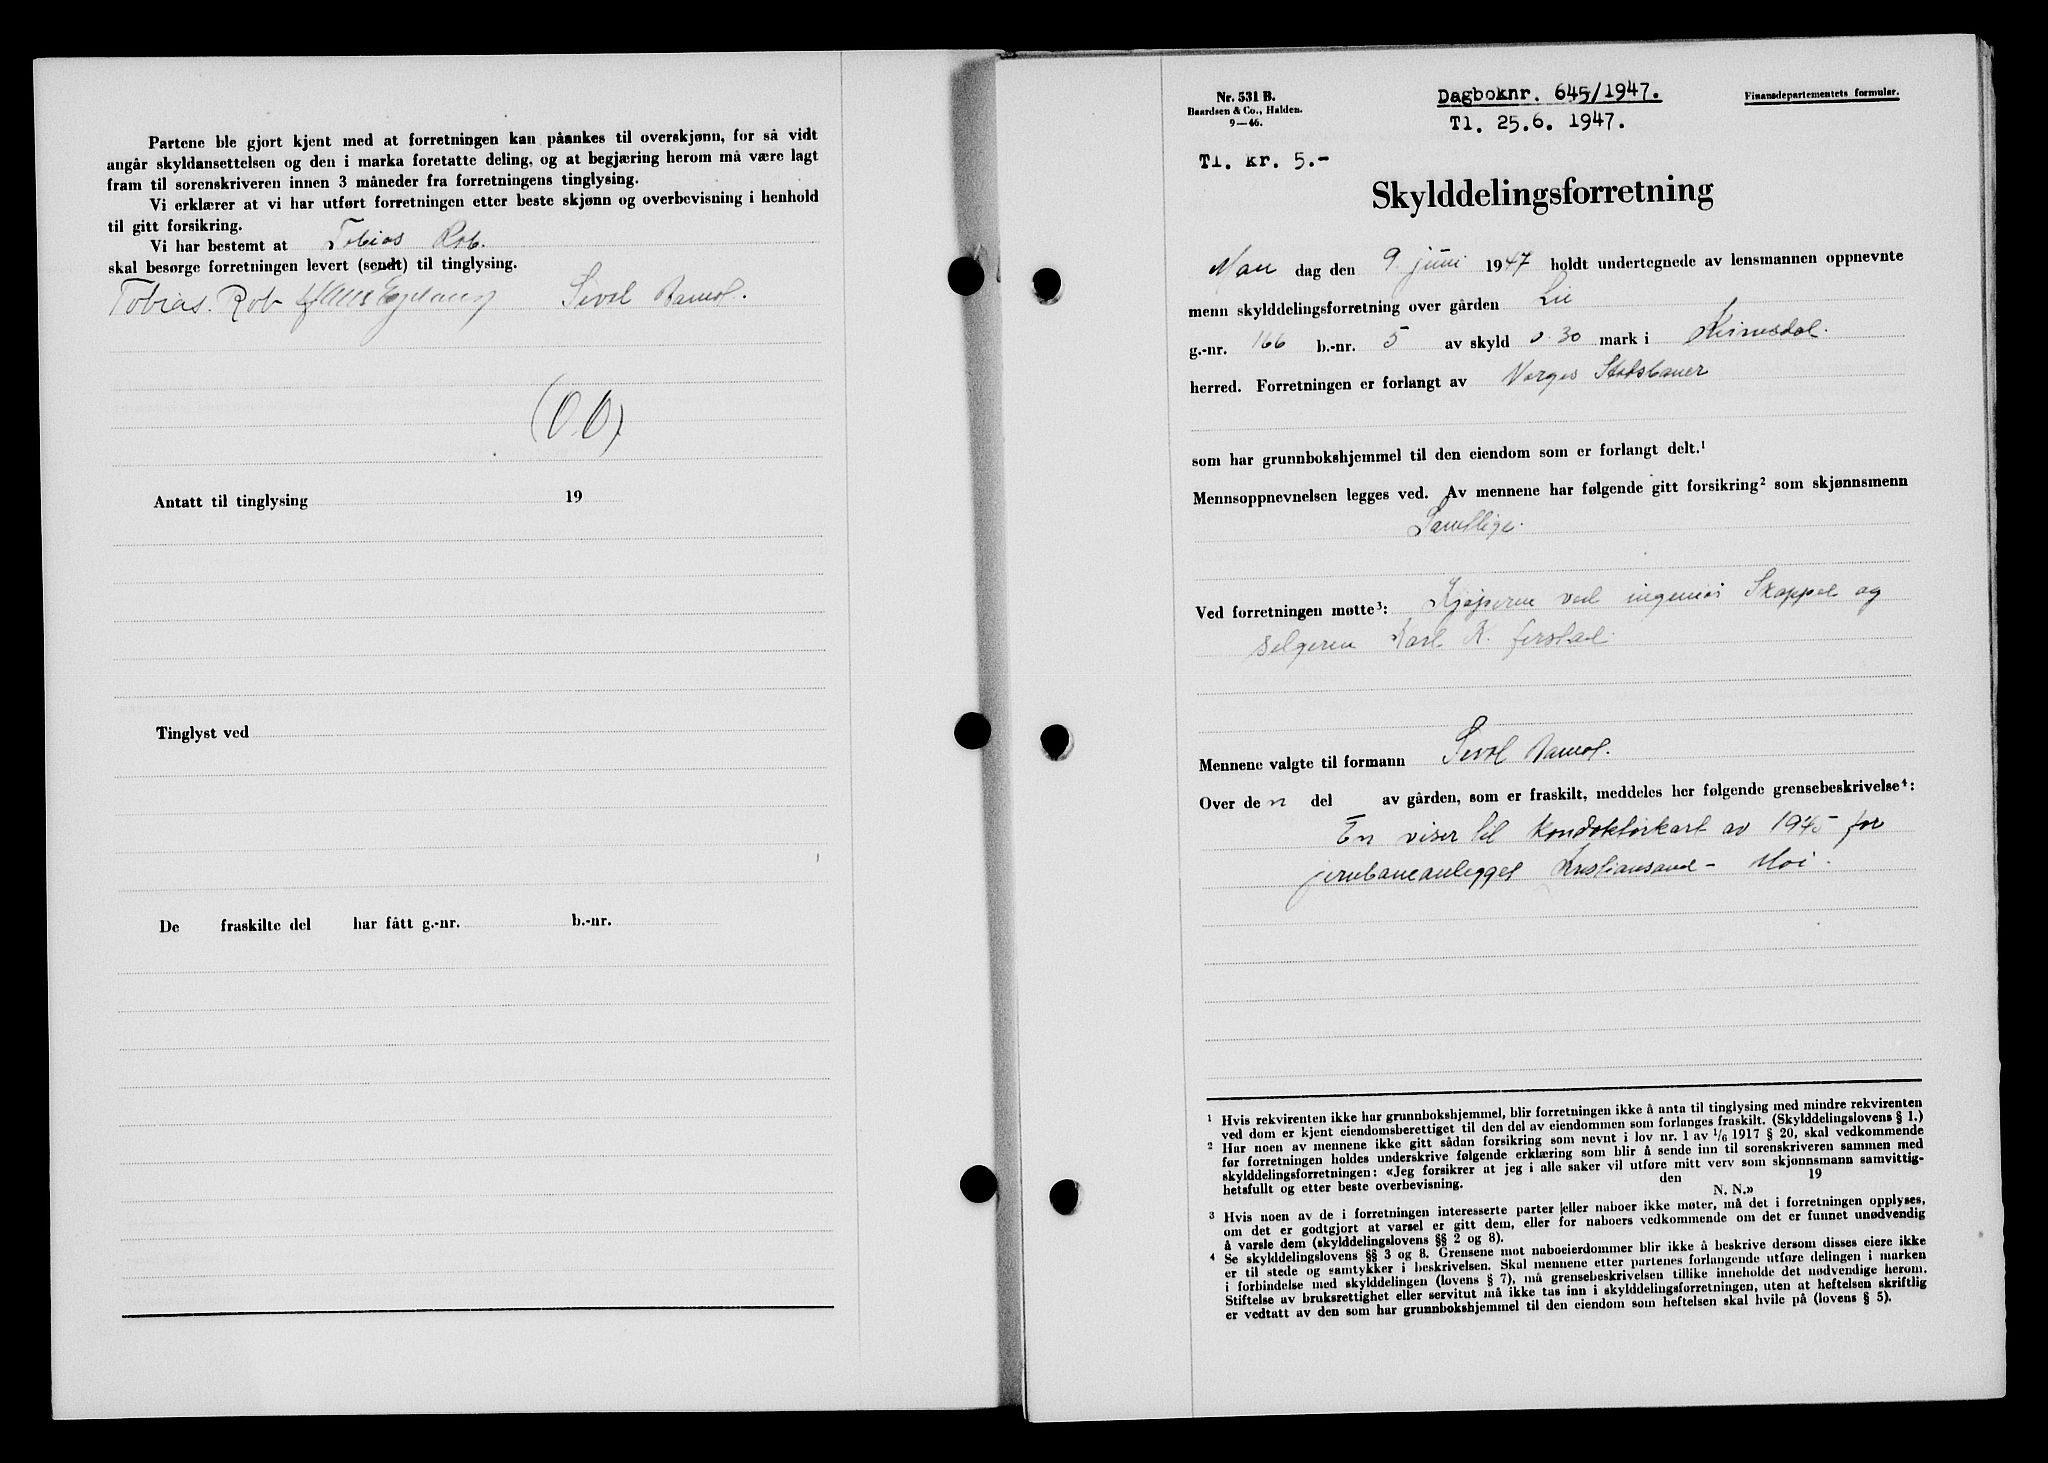 Partene ble gjort kjent med at forretningen kan påankes til overskjønn, for så vidt
angår skyldansettelsen og den i marka foretatte deling, og at begjæring herom må være lagt
fram til sorenskriveren innen 3 måneder fra forretningens tinglysing.
Vi erklærer at vi har utført forretningen etter beste skjønn og overbevisning i henhold
til gitt forsikring.
Vi har bestemt at Tobias Rob.
skal besørge forretningen levert (sendt) til tinglysing.
Tobias. Rob
(O.O).
Antatt til tinglysing 19
Tinglyst ved
De fraskilte del har fått g.-nr. b.-nr.
Nr. 531 B.
Baardsen & Co., Halden.
9—46.
Dagboknr. 645/1947.
Tl. 25.6. 1947.
Finansdepartementets formular.
Tl. kr. 5.-
Skylddelingsforretning
Man dag den 9. juni 1947 holdt undertegnede av lensmannen oppnevnte
menn skylddelingsforretning over gården Lie
g.-nr. 166 b.-nr. 5 av skyld 0.30 mark i Kvinesdal.
herred. Forretningen er forlangt av Norges Statsbaner
som har grunnbokshjemmel til den eiendom som er forlangt delt.¹
Mennsoppnevnelsen legges ved. Av mennene har følgende gitt forsikring² som skjønnsmenn
Samtlige.
Ved forretningen møtte³: Kjøperen ved ingeniør Skappel og
selgeren Karl K.
Mennene valgte til formann
Over den del av gården, som er fraskilt, meddeles her følgende grensebeskrivelse⁴:
En viser til konduktørkart av 1945 for
jernbaneanlegget Kristiansand - Moi.
¹ Hvis rekvirenten ikke har grunnbokshjemmel, blir forretningen ikke å anta til tinglysing med mindre rekvirenten
ved dom er kjent eiendomsberettiget til den del av eiendommen som forlanges fraskilt. (Skylddelingslovens § 1.)
² Har noen av mennene ikke gitt sådan forsikring som nevnt i lov nr. 1 av 1/6 1917 § 20, skal vedkommende
før forretningen holdes underskrive følgende erklæring som blir å sende inn til sorenskriveren sammen med
skylddelingsforretningen: «Jeg forsikrer at jeg i alle saker vil utføre mitt verv som skjønnsmann samvittig-
hetsfullt og etter beste overbevisning. den 19
N. N.»
³ Hvis noen av de i forretningen interesserte parter eller naboer ikke møter, må det i forretningen opplyses,
om det er godtgjort at varsel er gitt dem, eller for naboers vedkommende om det er funnet unødvendig
å varsle dem (skylddelingslovens §§ 2 og 8).
⁴ Se skylddelingslovens §§ 3 og 8. Grensene mot naboeierdommer blir ikke å beskrive dersom disses eiere ikke
er til stede og samtykker i beskrivelsen. Skal mennene etter partenes forlangende utføre delingen i marken
i forbindelse med skylddelingen (lovens § 7), må grensebeskrivelsen tillike inneholde det nødvendige herom.
Stiftelse av bruksrettighet eller servitut må ikke tas inn i skylddelingsforretningen, uten at heftelsen skriftlig
er vedtatt av den som har grunnbokshjemmel til den eiendom som heftelsen skal hvile på (lovens § 5).